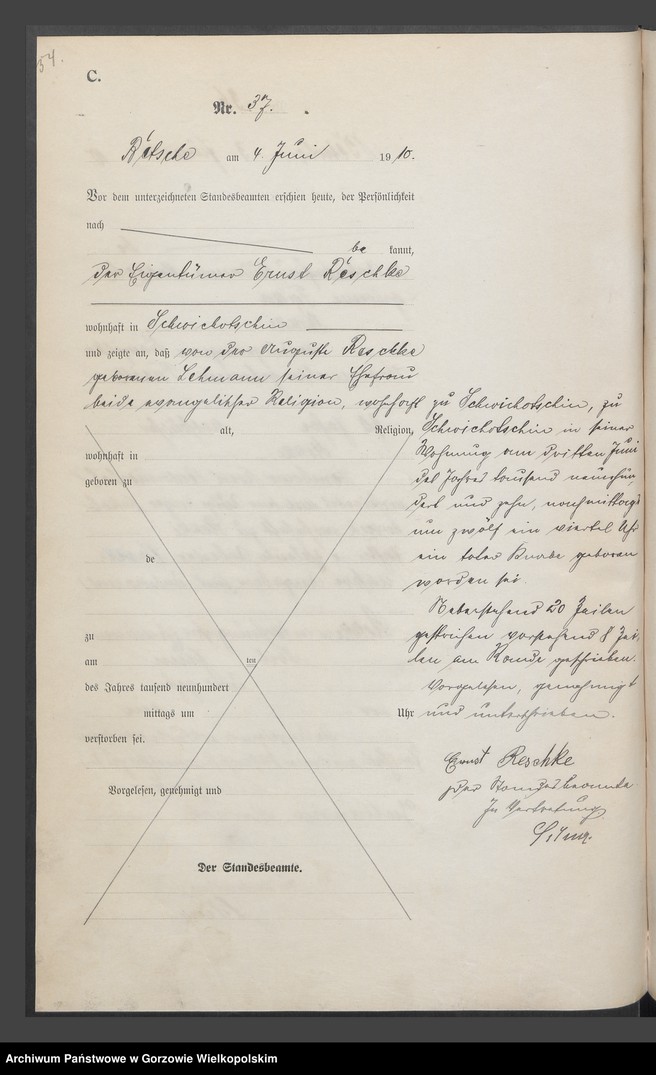 54.
C.
Nr. 37.
am 4. Juni 1910.
Vor dem unterzeichneten Standesbeamten erschien heute, der Persönlichkeit
nach
be kannt,
der Eigentümer Ernst Reschke
wohnhaft in Schwichotschin
und zeigte an, daß von der Auguste Reschke
geborenen Lehmann seiner Ehefrau
beide evangelischer Religion, wohnhaft zu Schwichotschin, zu
Schwichotschin in seiner
Wohnung am dritten Juni
des Jahres tausend neunhun
dert und zehn, nachmittags
um zwölf ein viertel Uhr
ein toter Knabe geboren
worden sei.
Nebenstehend 20 Zeilen
gestrichen vorstehend 8 Zei
len am Rande geschrieben.
Vorgelesen, genehmigt
und unterschrieben.
Ernst Reschke
Der Standesbeamte
In Vertretung
alt, Religion,
wohnhaft in
geboren zu
de
zu
am ten
des Jahres tausend neunhundert
mittags um Uhr
verstorben sei.
Vorgelesen, genehmigt und
Der Standesbeamte.
Archiwum Państwowe w Gorzowie Wielkopolskim